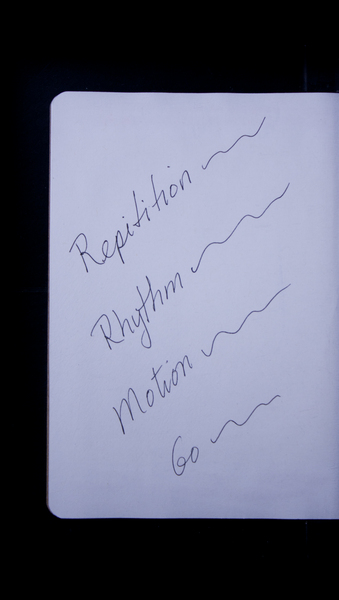 Repitition
Rhythm
Motion
Go